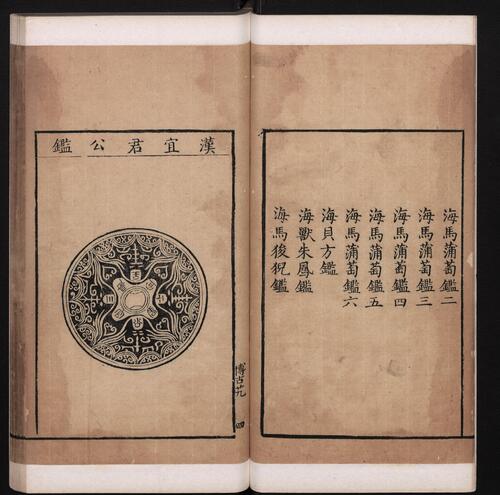 海馬蒲萄鑑二
海馬蒲萄鑑三
海馬蒲萄鑑四
海馬蒲萄鑑五
海馬蒲萄鑑六
海貝方鑑
海獸朱鳳鑑
海馬狻猊鑑
漢宜君公鑑
四